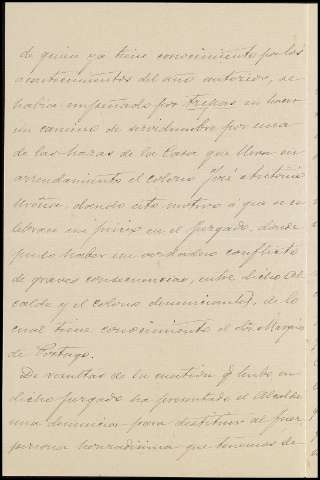 de quien ya tiene conocimiento por los
acontecimientos del año anterior, se
habia empeñado por en hacer
un camino de servidumbre por una
de las hazas de la Casa que lleva en
arrendamiento el colono José Antonio
dando esto motivo á que se ce
lebrara un juicio en el Juzgado, donde
pudo haber un verdadero conflicto
de graves consecuencias, entre dicho Al
calde y el colono denunciante, de lo
cual tiene conocimiento el Sr. Marqués
de
De resultas de la cuestion q. hubo en
dicho juzgado ha presentado el Alcalde
una denuncia para destituir al Juez
persona honradisima que tenemos de